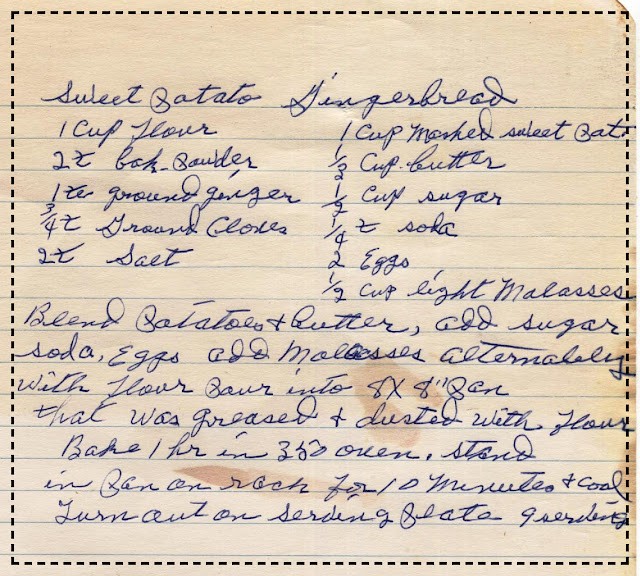 Sweet Potato Gingerbread
1 Cup flour
2 t bak. Powder
1 te ground ginger
3/4 t Ground Cloves
2 t Salt
1 Cup Mashed sweet Pot.
1/2 Cup butter
1/2 Cup sugar
1/4 t soda
2 Eggs
1/2 Cup light Malasses
Blend Potatoes & butter, add sugar
soda, Eggs add Malasses alternately
With flour Pour into 8 X 8" Pan
that was greased & dusted With flour
Bake 1 hr in 350 oven. stand
in Pan on rack for 10 Minutes & cool
Turn out on serving Plate 9 serving